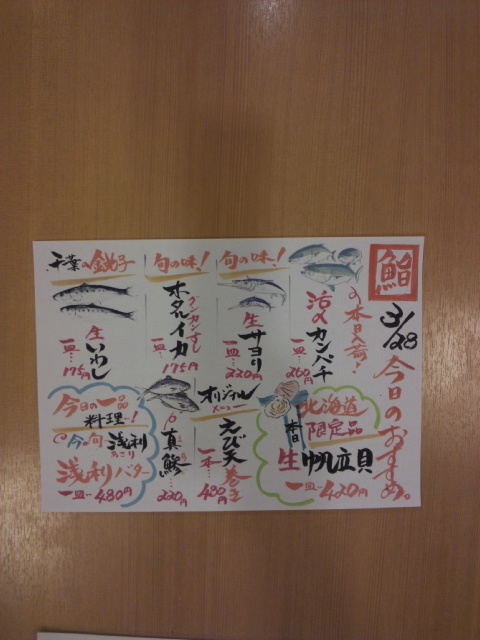 鮨
3/28
今日のおすすめ。
本日入荷!
活〆カンパチ
一皿…260円
旬の味!
生サヨリ
一皿…220円
旬の味!
グンカンずし
ホタルイカ
一皿…175円
千葉の銚子
生いわし
一皿…175円
北海道
限定品
本日
生帆立貝
一皿…420円
オリジナル
メニュー
えび天巻き
一本…480円
真鯵
220円
今日の一品
料理…!
今が旬
浅利
あさり
浅利バター
一皿…480円